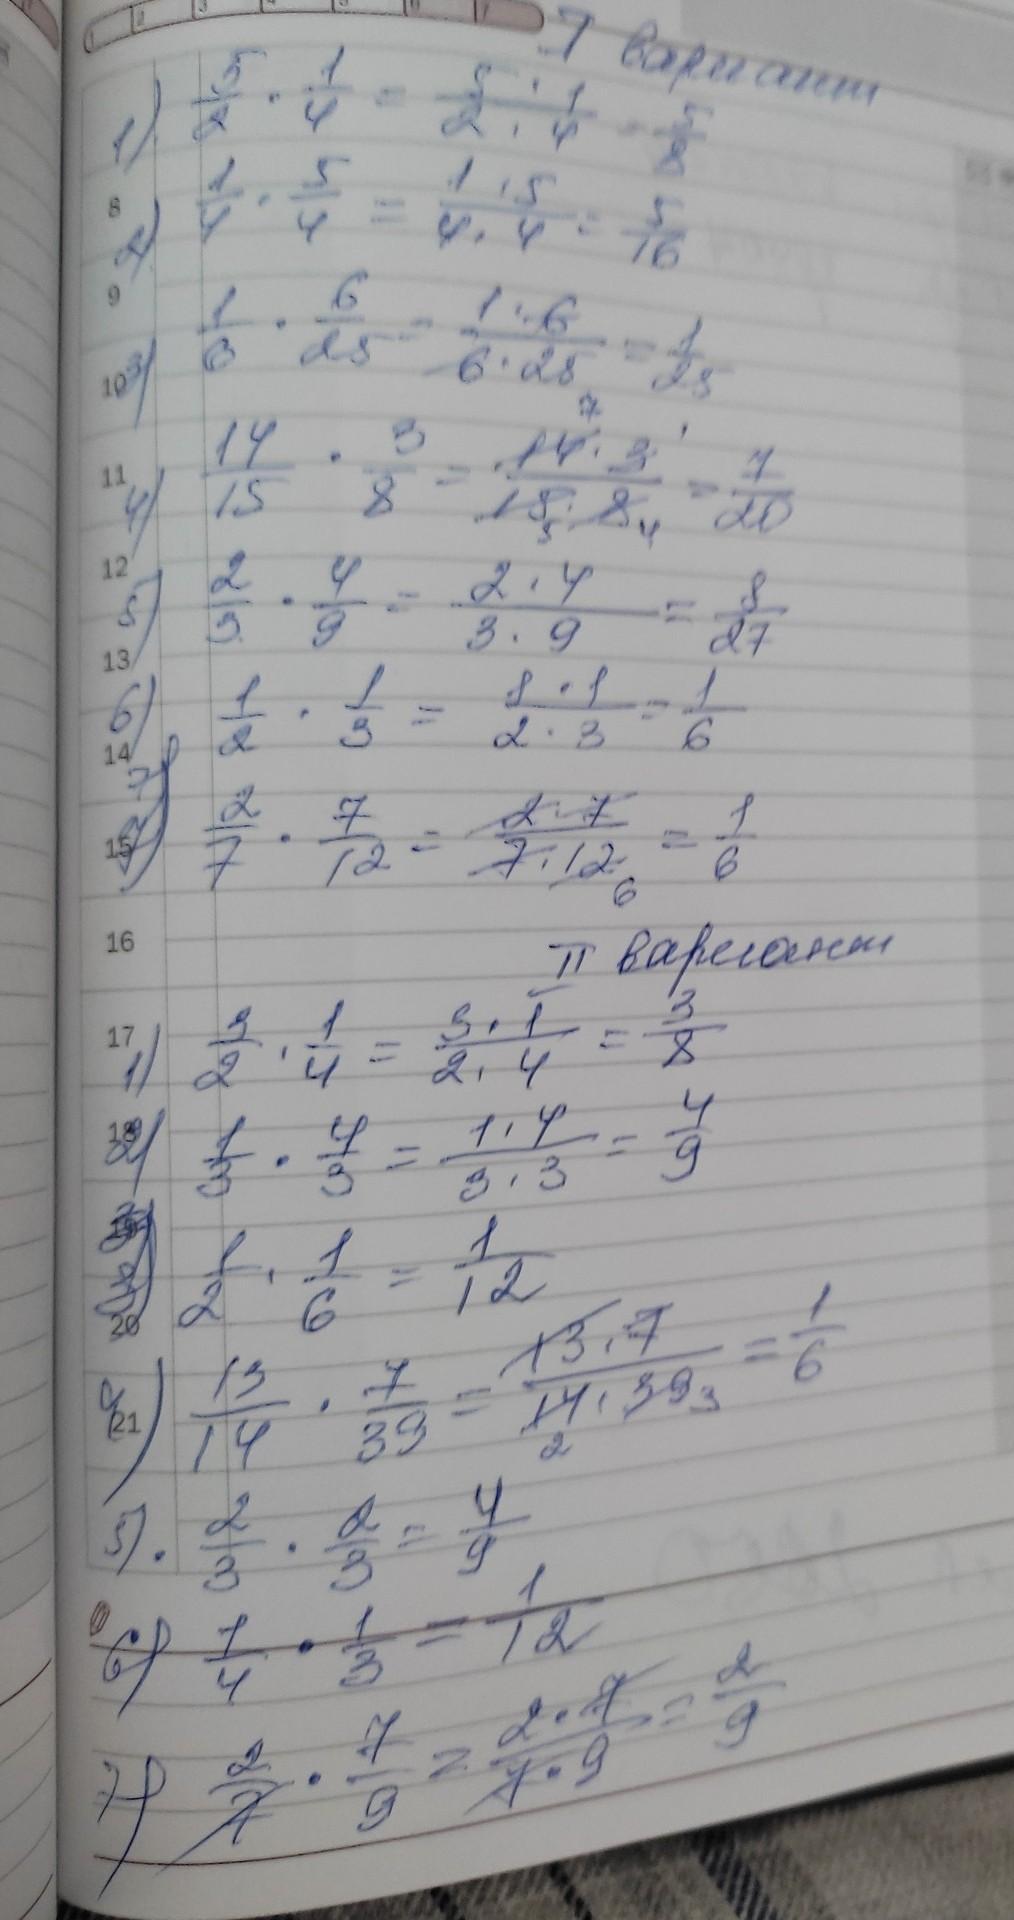 I вариант
1) 5/2 · 1/4 = 5·1/2·4 = 5/8
8
2) 1/4 · 5/4 = 1·5/4·4 = 5/16
9
3) 1/6 · 6/25 = 1·6/6·25 = 1/25
10
11
4) 14/15 · 3/8 = 14·3/15·8 = 7/20
12
5) 2/3 · 4/9 = 2·4/3·9 = 8/27
13
6) 1/2 · 1/3 = 1·1/2·3 = 1/6
14
7) 2/7 · 7/12 = 2·7/7·12 = 1/6
15
16
II вариант
17
1) 3/2 · 1/4 = 3·1/2·4 = 3/8
18
2) 1/3 · 4/3 = 1·4/3·3 = 4/9
19
1/2 · 1/6 = 1/12
20
4) 13/14 · 7/39 = 13·7/14·39 = 1/6
21
5) 2/3 · 2/3 = 4/9
6) 1/4 · 1/3 = 1/12
7) 2/7 · 7/9 = 2·7/7·9 = 2/9